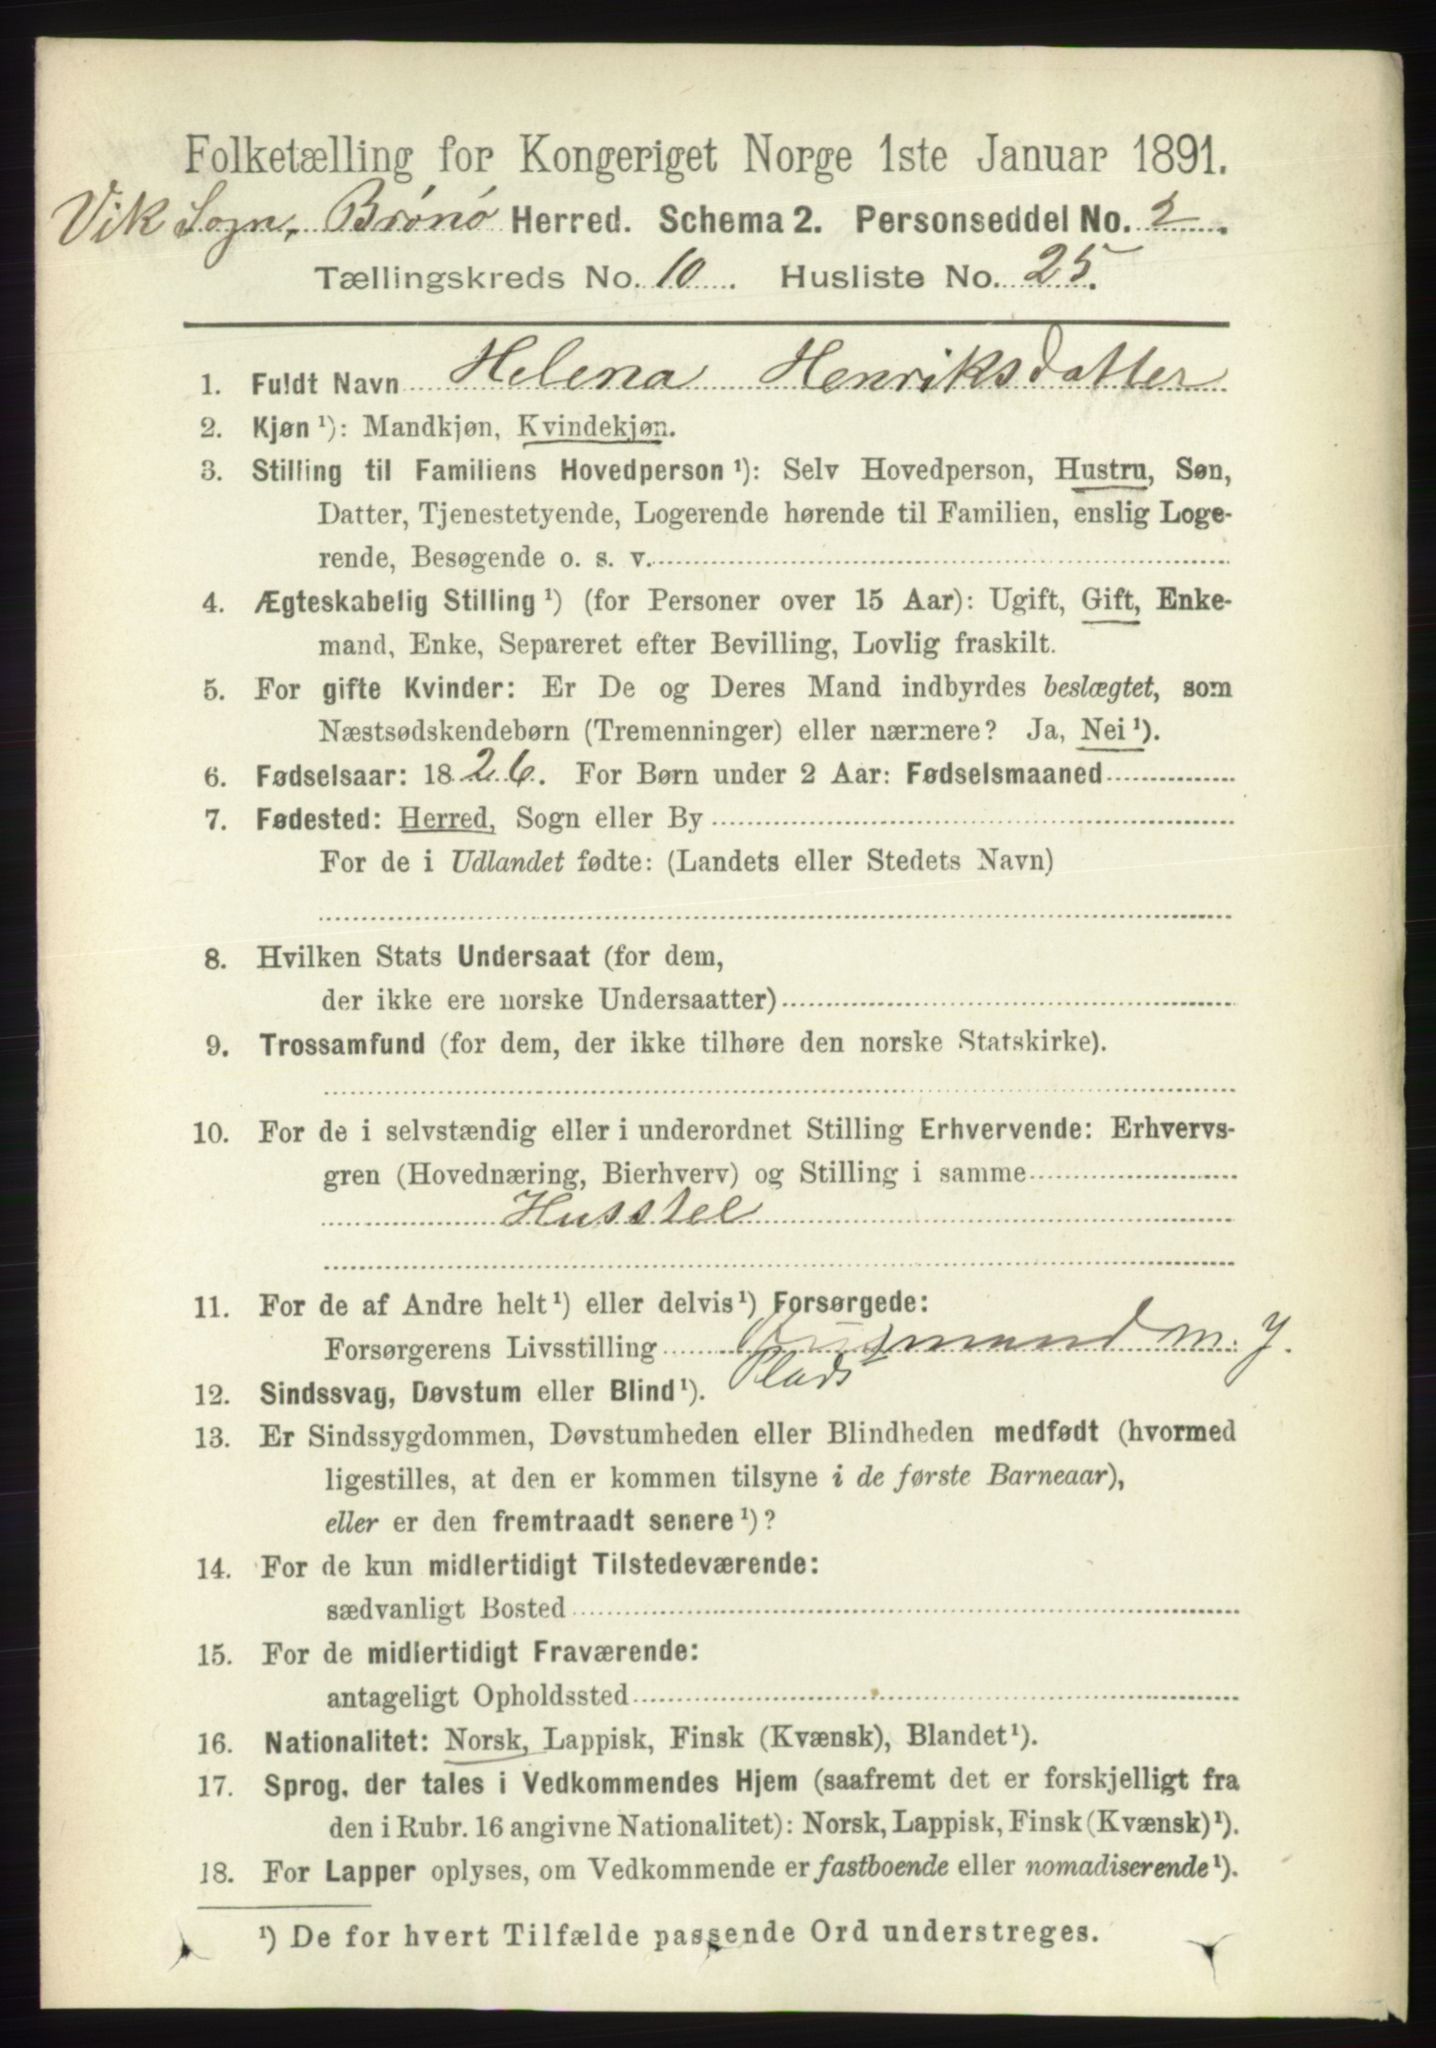 Folketælling for Kongeriget Norge 1ste Januar 1891.
Vik Sogn, Brønø Herred. Schema 2. Personseddel No. 2.
Tællingskreds No. 10. Husliste No. 25.
1. Fuldt Navn Helena Henriksdatter
2. Kjøn ¹): Mandkjøn, Kvindekjøn.
3. Stilling til Familiens Hovedperson ¹): Selv Hovedperson, Hustru, Søn,
Datter, Tjenestetyende, Logerende hørende til Familien, enslig Loge-
rende, Besøgende o. s. v.
4. Ægteskabelig Stilling ¹) (for Personer over 15 Aar): Ugift, Gift, Enke-
mand, Enke, Separeret efter Bevilling, Lovlig fraskilt.
5. For gifte Kvinder: Er De og Deres Mand indbyrdes beslægtet, som
Næstsødskendebørn (Tremenninger) eller nærmere? Ja, Nei ¹).
6. Fødselsaar: 1826. For Børn under 2 Aar: Fødselsmaaned
7. Fødested: Herred, Sogn eller By
For de i Udlandet fødte: (Landets eller Stedets Navn)
8. Hvilken Stats Undersaat (for dem,
der ikke ere norske Undersaatter)
9. Trossamfund (for dem, der ikke tilhøre den norske Statskirke).
10. For de i selvstændig eller i underordnet Stilling Erhvervende: Erhvervs-
gren (Hovednæring, Bierhverv) og Stilling i samme
Husstel
11. For de af Andre helt ¹) eller delvis ¹) Forsørgede:
Forsørgerens Livsstilling Husmand m. J.
Plads
12. Sindssvag, Døvstum eller Blind ¹).
13. Er Sindssygdommen, Døvstumheden eller Blindheden medfødt (hvormed
ligestilles, at den er kommen tilsyne i de første Barneaar),
eller er den fremtraadt senere ¹)?
14. For de kun midlertidigt Tilstedeværende:
sædvanligt Bosted
15. For de midlertidigt Fraværende:
antageligt Opholdssted
16. Nationalitet: Norsk, Lappisk, Finsk (Kvænsk), Blandet ¹).
17. Sprog, der tales i Vedkommendes Hjem (saafremt det er forskjelligt fra
den i Rubr. 16 angivne Nationalitet): Norsk, Lappisk, Finsk (Kvænsk) ¹).
18. For Lapper oplyses, om Vedkommende er fastboende eller nomadiserende ¹).
¹) De for hvert Tilfælde passende Ord understreges.